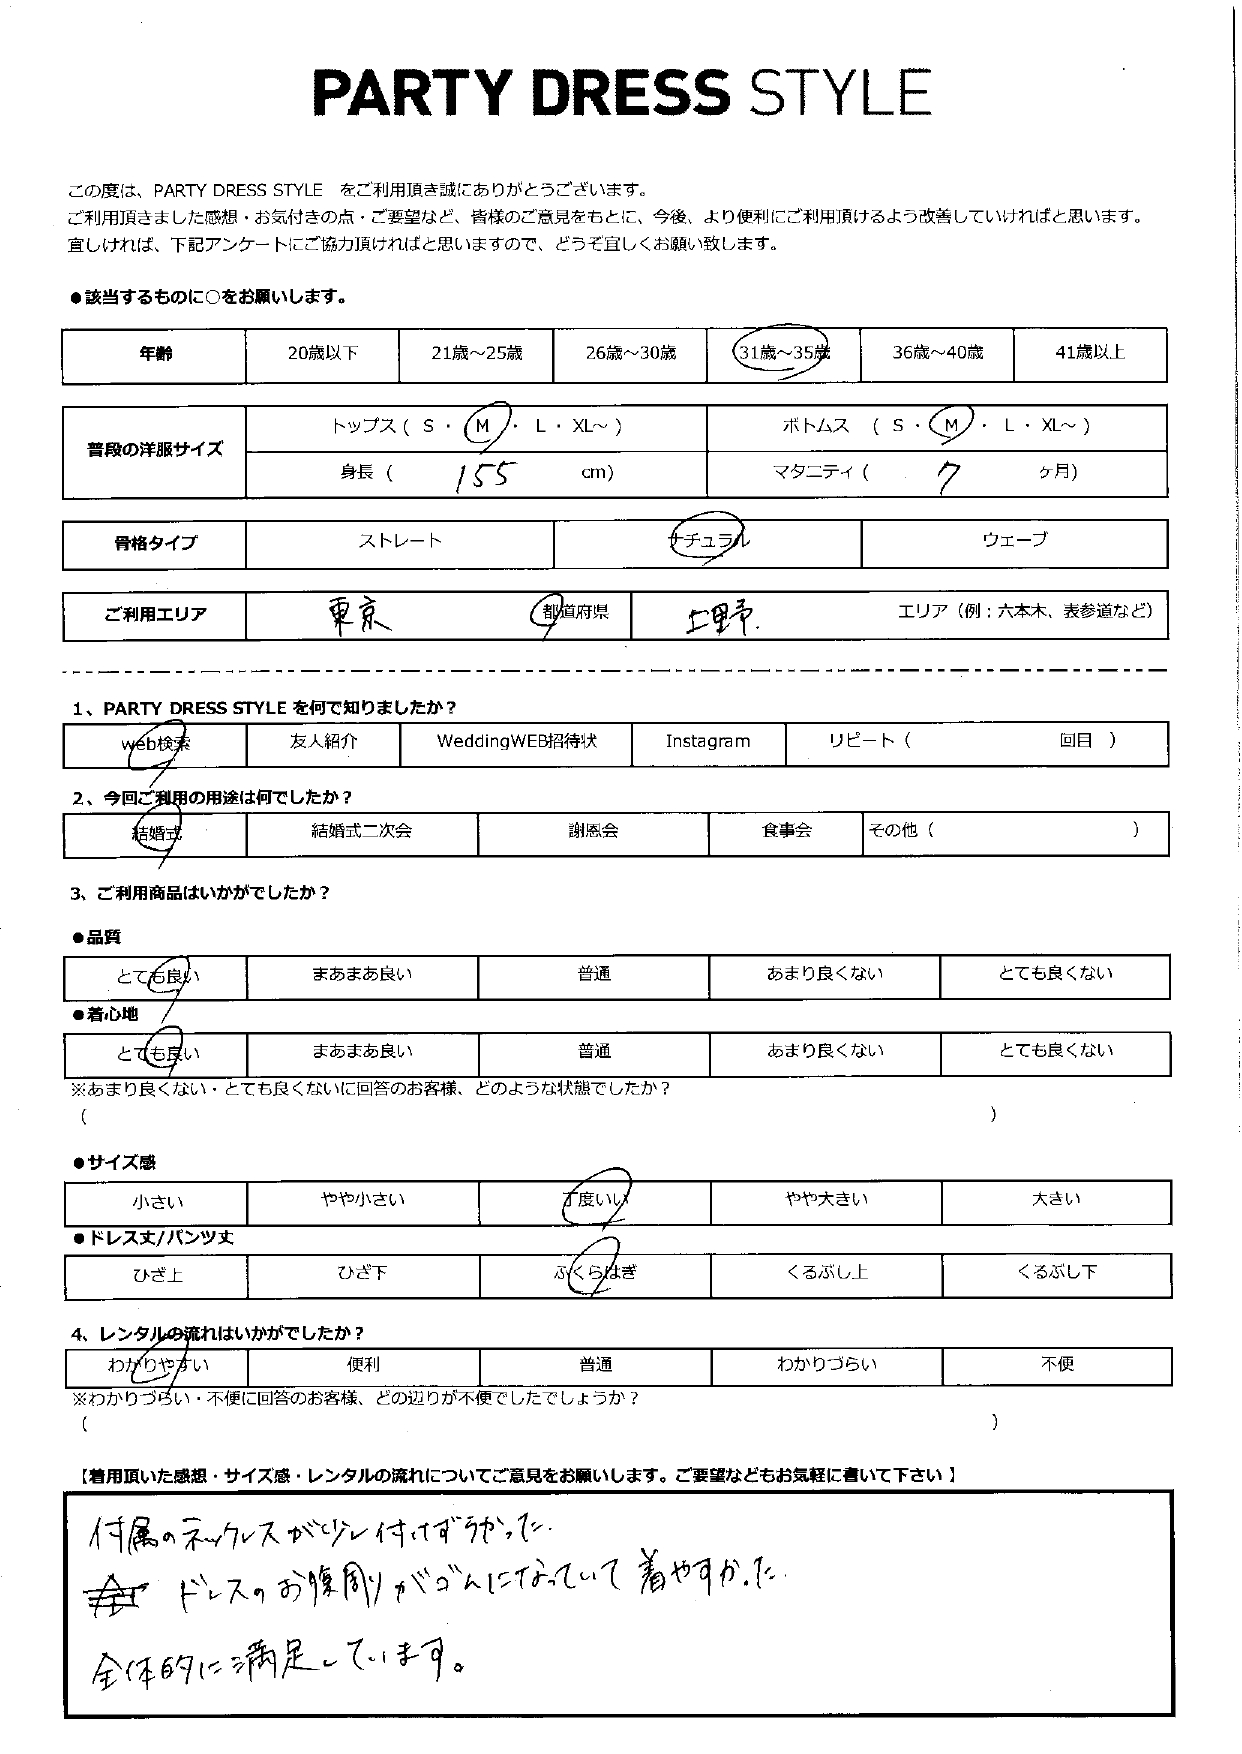 PARTY DRESS STYLE
この度は、PARTY DRESS STYLE をご利用頂き誠にありがとうございます。
ご利用頂きました感想・お気付きの点・ご要望など、皆様のご意見をもとに、今後、より便利にご利用頂けるよう改善していければと思います。
宜しければ、下記アンケートにご協力頂ければと思いますので、どうぞ宜しくお願い致します。
●該当するものに○をお願いします。
年齢 20歳以下 21歳～25歳 26歳～30歳 31歳～35歳 36歳～40歳 41歳以上
普段の洋服サイズ トップス ( S ・ M ・ L ・ XL～ ) ボトムス ( S ・ M ・ L ・ XL～ )
身長 ( 155 cm) マタニティ ( 7 ヶ月)
骨格タイプ ストレート ナチュラル ウェーブ
ご利用エリア 東京 都道府県 上野 エリア（例：六本木、表参道など）
1、PARTY DRESS STYLE を何で知りましたか？
web検索 友人紹介 WeddingWEB招待状 Instagram リピート ( 回目 )
2、今回ご利用の用途は何でしたか？
結婚式 結婚式二次会 謝恩会 食事会 その他 ( )
3、ご利用商品はいかがでしたか？
●品質
とても良い まあまあ良い 普通 あまり良くない とても良くない
●着心地
とても良い まあまあ良い 普通 あまり良くない とても良くない
※あまり良くない・とても良くないに回答のお客様、どのような状態でしたか？
( )
●サイズ感
小さい やや小さい 丁度いい やや大きい 大きい
●ドレス丈/パンツ丈
ひざ上 ひざ下 ふくらはぎ くるぶし上 くるぶし下
4、レンタルの流れはいかがでしたか？
わかりやすい 便利 普通 わかりづらい 不便
※わかりづらい・不便に回答のお客様、どの辺りが不便でしたでしょうか？
( )
【着用頂いた感想・サイズ感・レンタルの流れについてご意見をお願いします。ご要望などもお気軽に書いて下さい】
付属のネックレスが少し付けずらかった.
ドレスのお腹周りがゴムになっていて着やすかった.
全体的に満足しています。